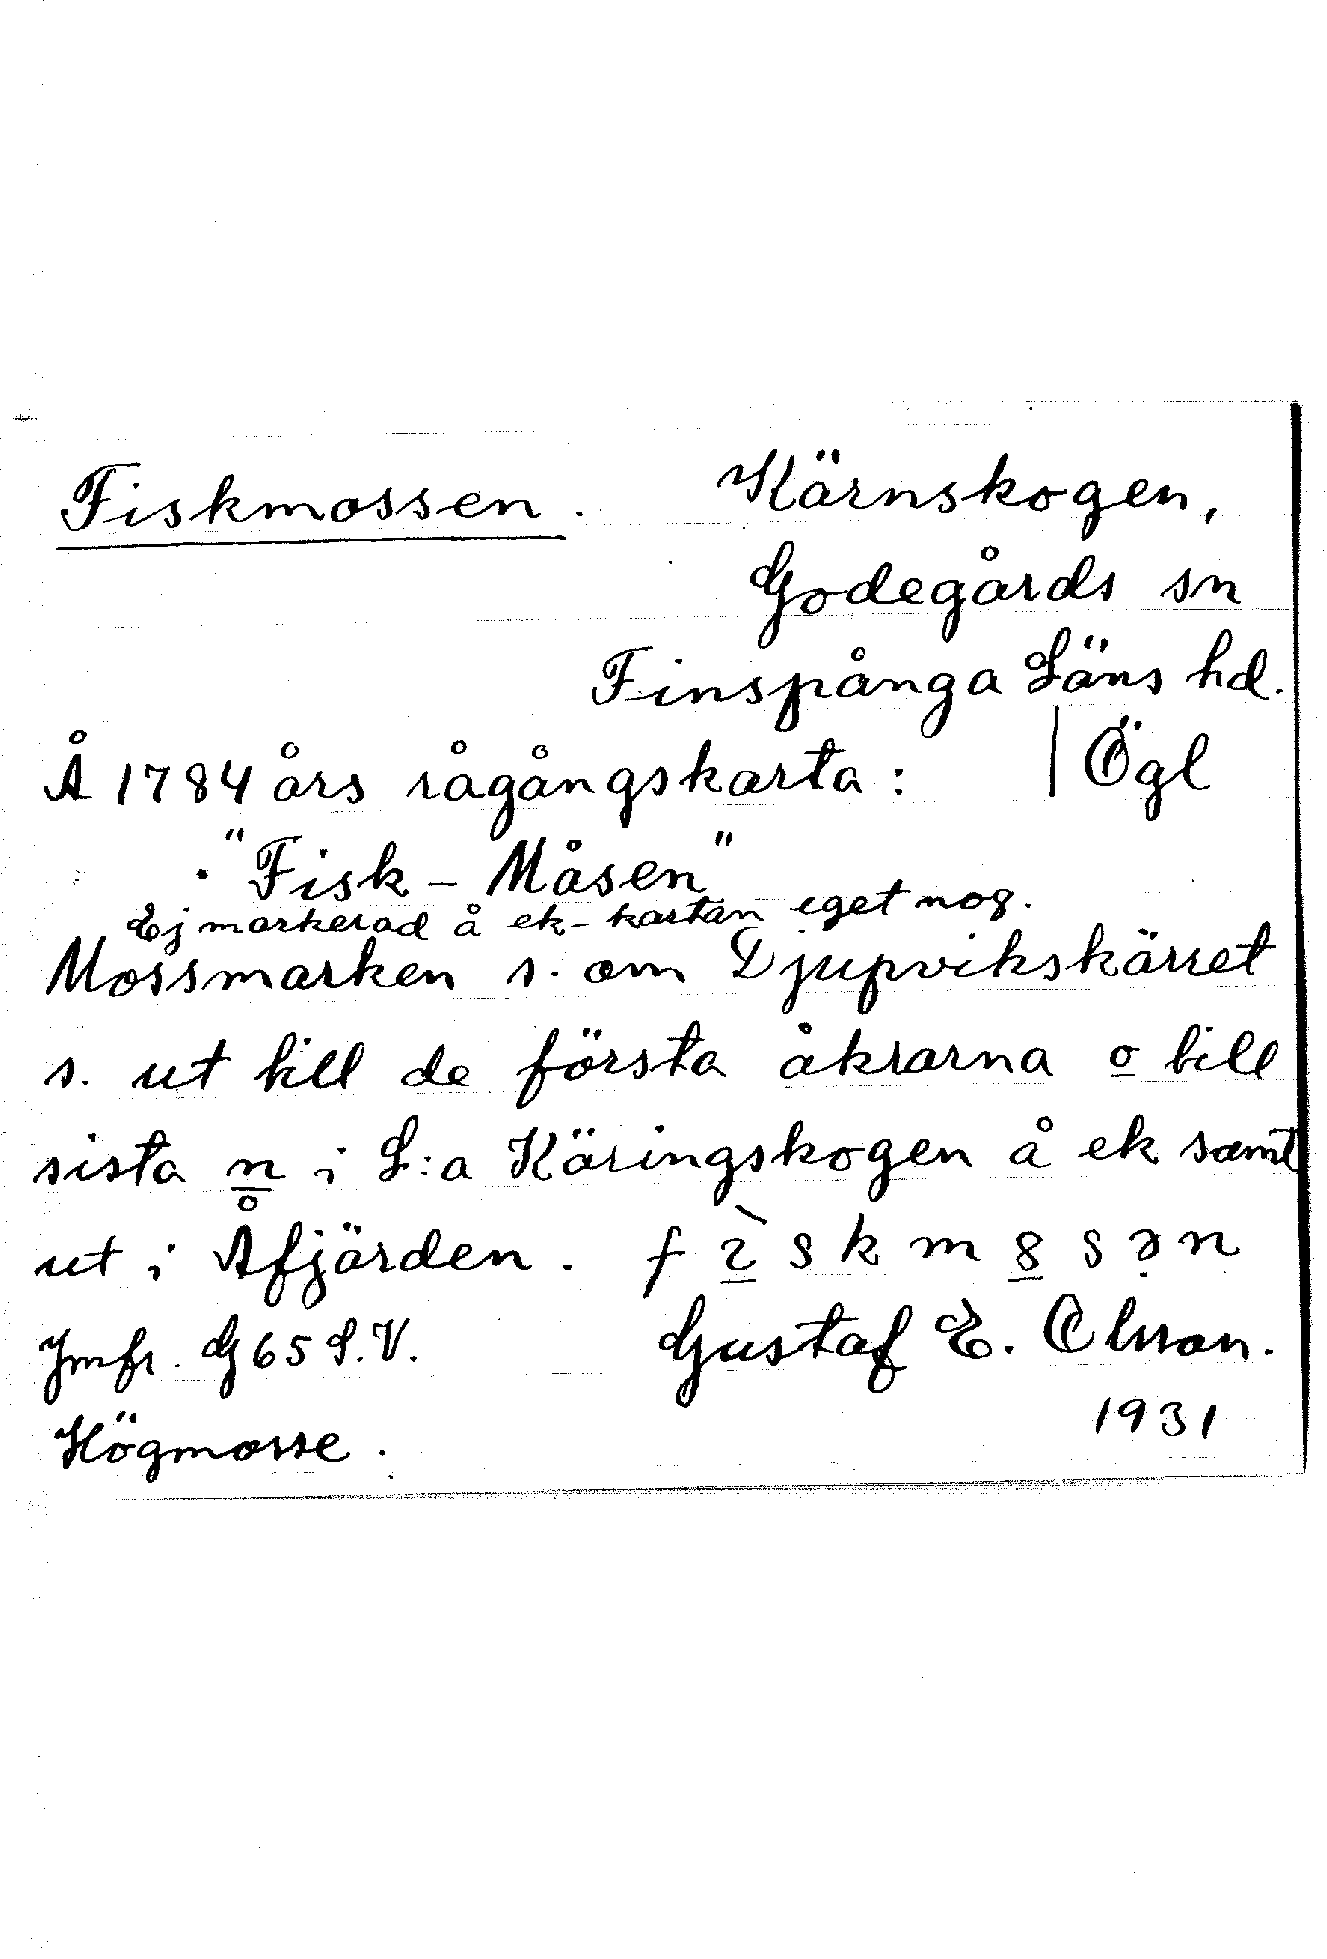 Fiskmossen. Kärnskogen,
Godegårds sn
Finspånga Läns hd.
Å 1784 års rågångskarta: | Ögl
"Fisk - Måsen"
Ej markerad å ek-kartan eget nog.
Mossmarken s. om Djupvikskärret
s. ut till de första åkrarna o till
sista n i L:a Käringskogen å ek samt
ut i Åfjärden.
Jmfr. G 65 S.V. Gustaf E. Olsson.
Högmosse. 1931